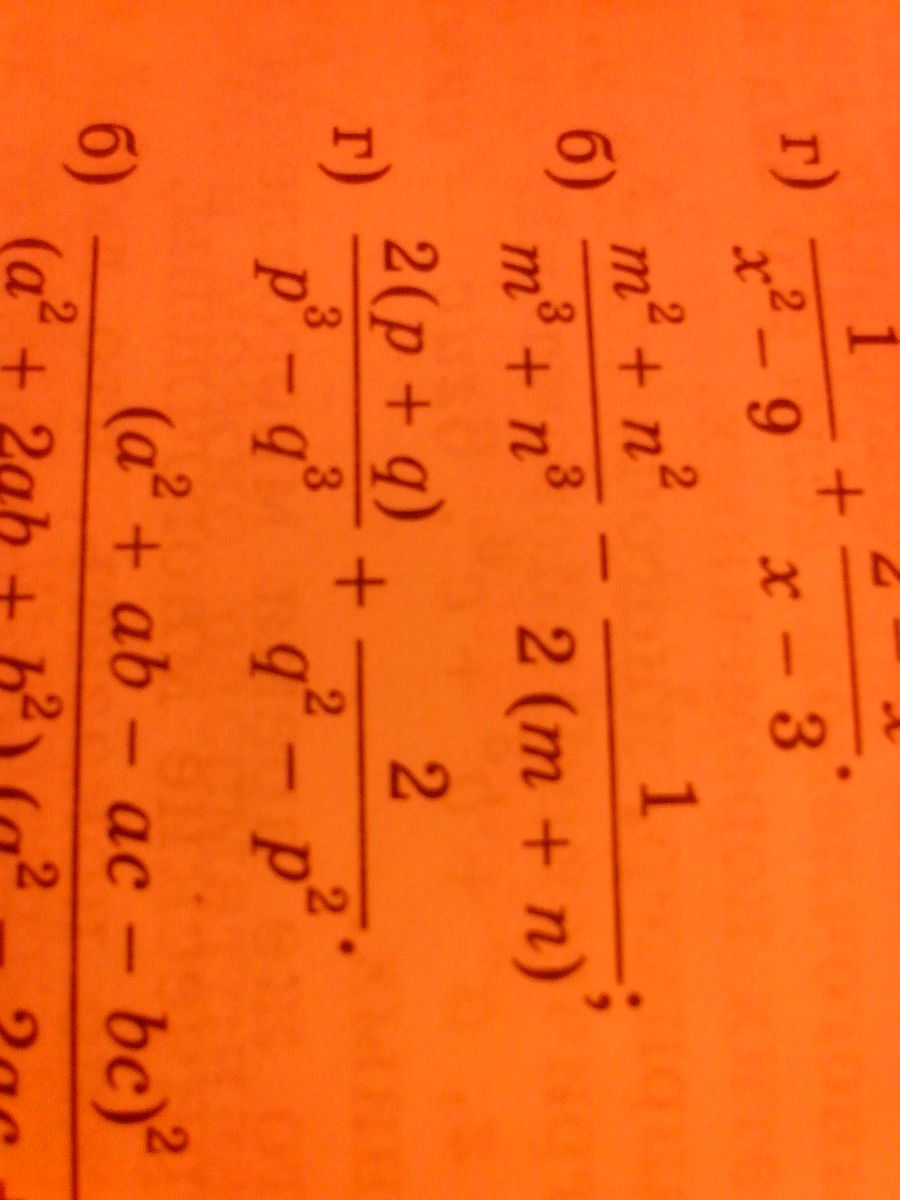 г) \frac{1}{x^2 - 9} + \frac{2 - x}{x - 3}.
б) \frac{m^2 + n^2}{m^3 + n^3} - \frac{1}{2(m + n)};
г) \frac{2(p + q)}{p^3 - q^3} + \frac{2}{q^2 - p^2}.
б) \frac{(a^2 + ab - ac - bc)^2}{(a^2 + 2ab + b^2)(a^2 - 2ac +}